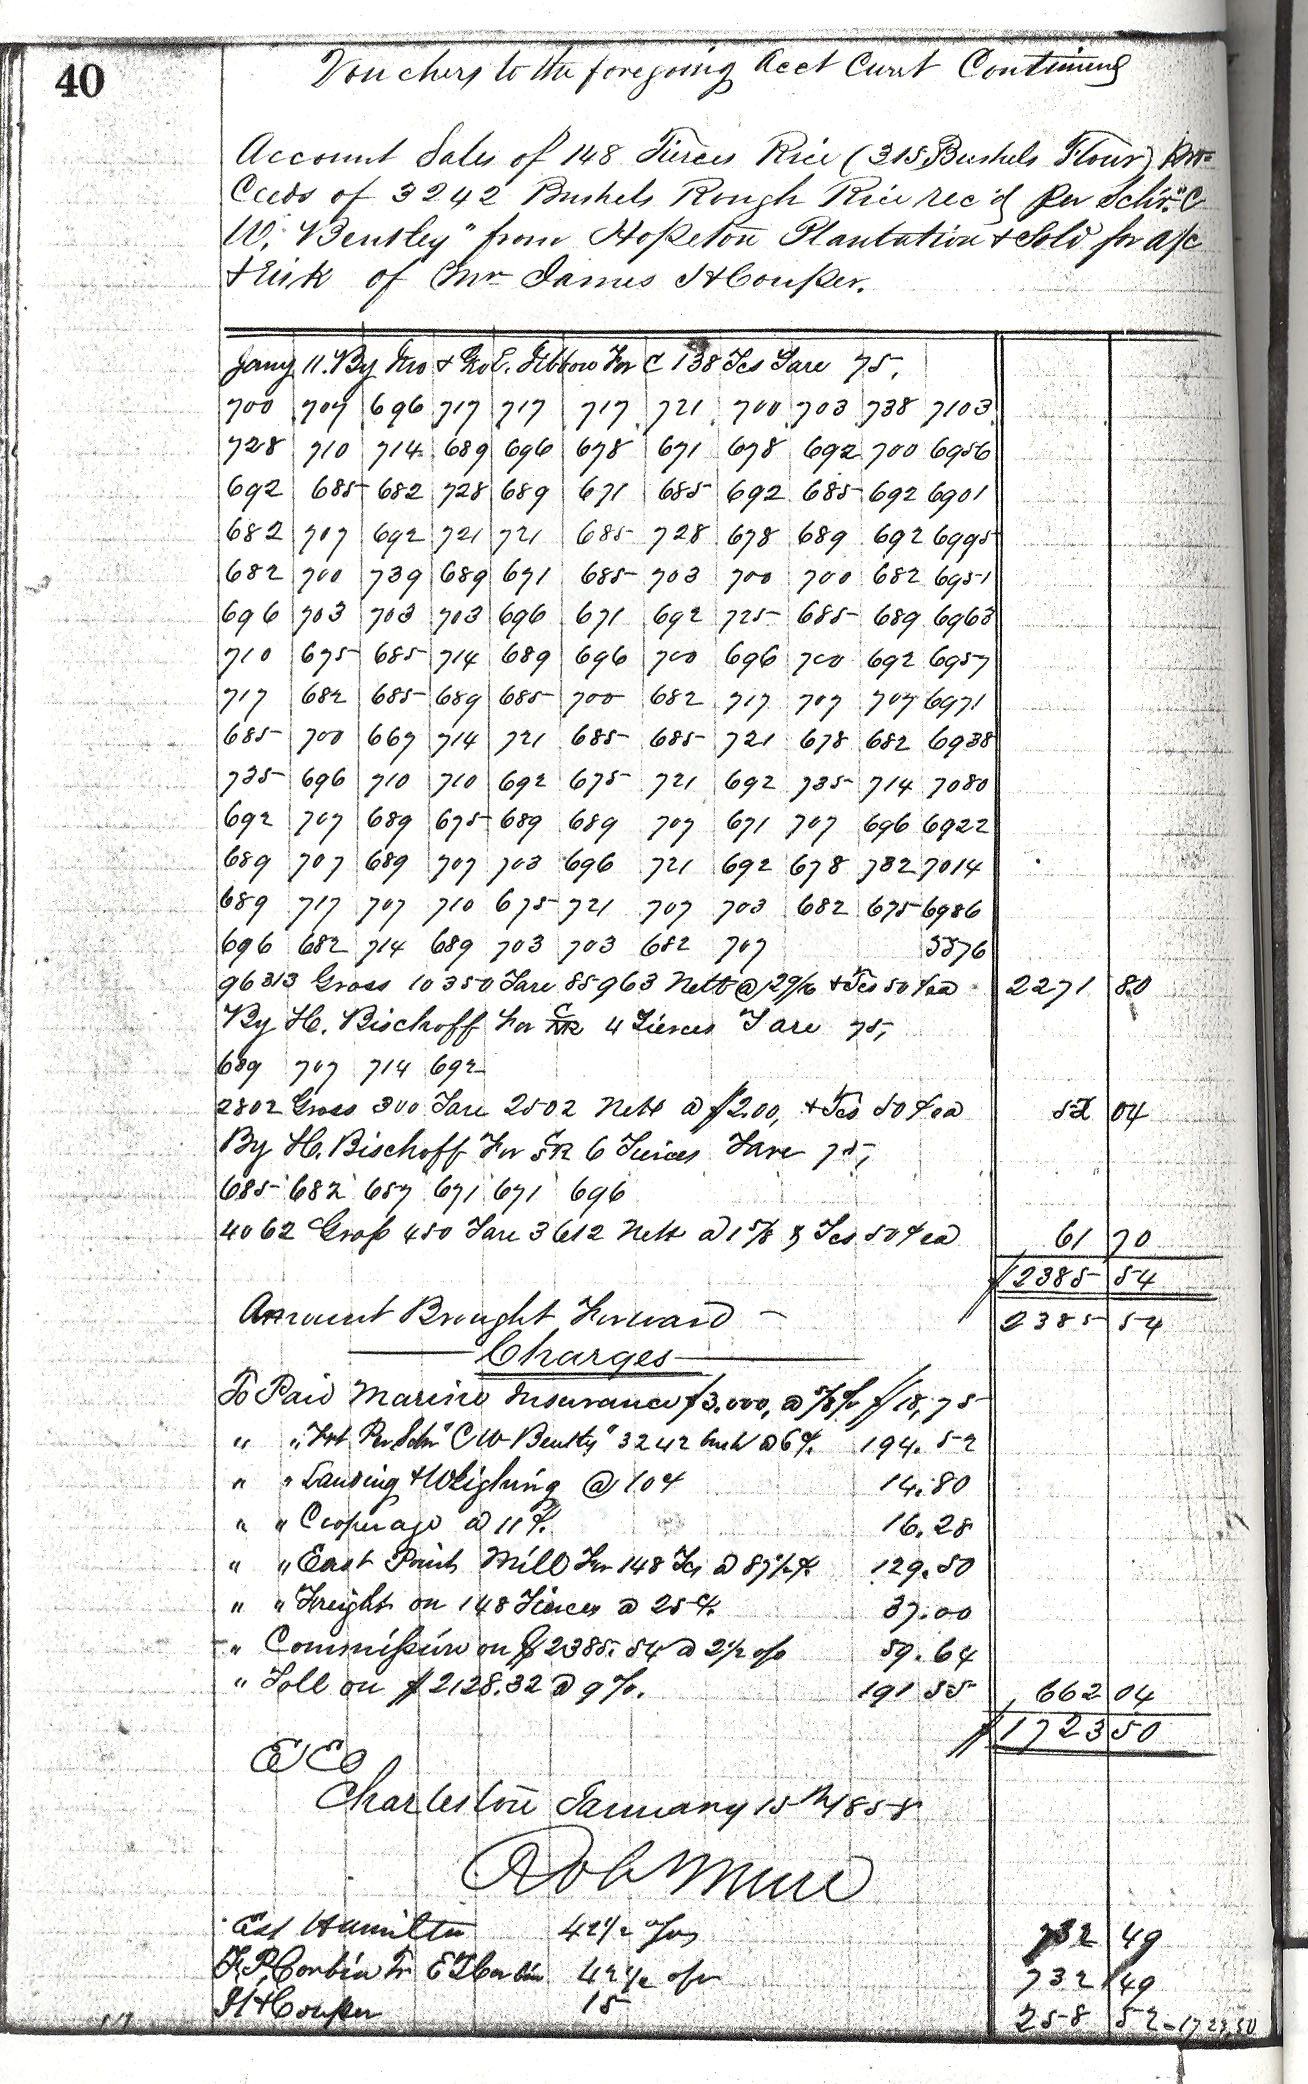 40
Vouchers to the foregoing Acct Curt Continued
Account Sales of 148 Tierces Rice (315 Bushels Flour) pro=
ceeds of 3242 Bushels Rough Rice rec'd per Schr. "C
W. Bentley" from Hopeton Plantation & Sold for a/c
& risk of Mr James H Couper.
Jany 11. By Jno & Geo E. Gibbon For C 138 Tcs Tare 75,
700 707 696 717 717 717 721 700 703 738 7103
728 710 714 689 696 678 671 678 692 700 6956
692 685 682 728 689 671 685 692 685 692 6901
682 707 692 721 721 685 728 678 689 692 6995
682 700 739 689 671 685 703 700 700 682 6951
696 703 703 703 696 671 692 725 685 689 6963
710 675 685 714 689 696 700 696 700 692 6957
717 682 685 689 685 700 682 717 707 707 6971
685 700 667 714 721 685 685 721 678 682 6938
735 696 710 710 692 675 721 692 735 714 7080
692 707 689 675 689 689 707 671 707 696 6922
689 707 689 707 703 696 721 692 678 732 7014
689 717 707 710 675 721 707 703 682 675 6986
696 682 714 689 703 703 682 707 5576
96313 Gross 10350 Tare 85963 Nett @ 2 9/16 & Tcs 50¢ ea 2271 80
By H. Bischoff For 4 Tierces Tare 75,
689 707 714 692
2802 Gross 300 Tare 2502 Nett @ $2.00, & Tcs 50¢ ea 52 04
By H. Bischoff For SR 6 Tierces Tare 75,
685 682 657 671 671 696
4062 Gross 450 Tare 3612 Nett @ 1 5/8 & Tcs 50¢ ea 61 70
$2385 54
Amount Brought Forward – 2385 54
Charges
To Paid Marine Insurance $3.000, @ 5/8 % $18,75
" " Frt Per Schr "C W Bently" 3242 bush @ 6¢. 194.52
" " Landing & Weighing @ 10¢ 14.80
" " Cooperage @ 11¢. 16.28
" " East Point Mill For 148 Tcs @ 87½¢ 129.50
" " Freight on 148 Tierces @ 25¢. 37.00
" Commission on $2385.54 @ 2½ o/o 59.64
" Toll on $2128.32 @ 9 %. 191 55 662 04
$1723 50
E E O
Charleston January 15th 1858
Rob Mure
Est Hamilton 42½ o/o 732 49
F. P. Corbin Tr E T Corbin 42½ o/o 732 49
J H Couper 15 258 52 = 1723.50